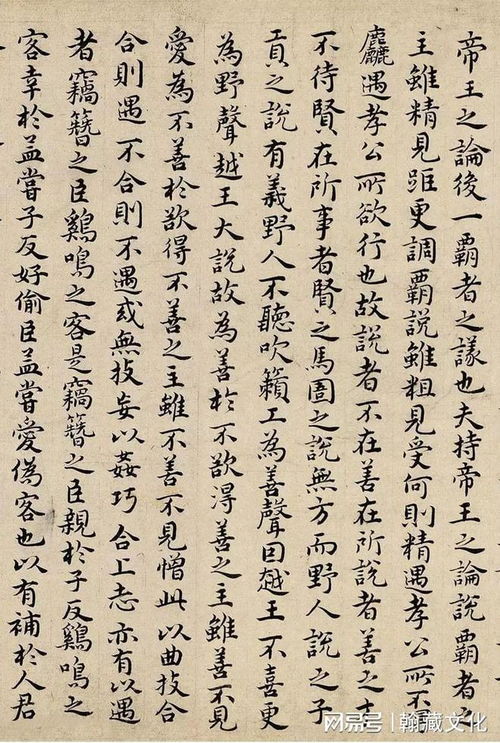 帝王之論後一覇者之議也夫持帝王之論說覇者之
主雖精見距更調覇說雖粗見受何則精遇孝公所不
麤遇孝公所欲行也故說者不在善在所說者善之才
不待賢在所事者賢之馬圄之說無方而野人說之子
貢之說有義野人不聽吹籟工為善聲回越王不喜更
為野聲越王大說故為善於不欲淂善之主雖善不見
愛為不善於欲得不善之主雖不善不見憎此以曲技合
合則遇不合則不遇或無技妄以姦巧合上志亦有以遇
者竊簪之臣鷄鳴之客是竊簪之臣親於子反鷄鳴之
客幸於孟嘗子反好偷臣孟嘗愛偽客也以有補於人君
网易号 | 翰藏文化